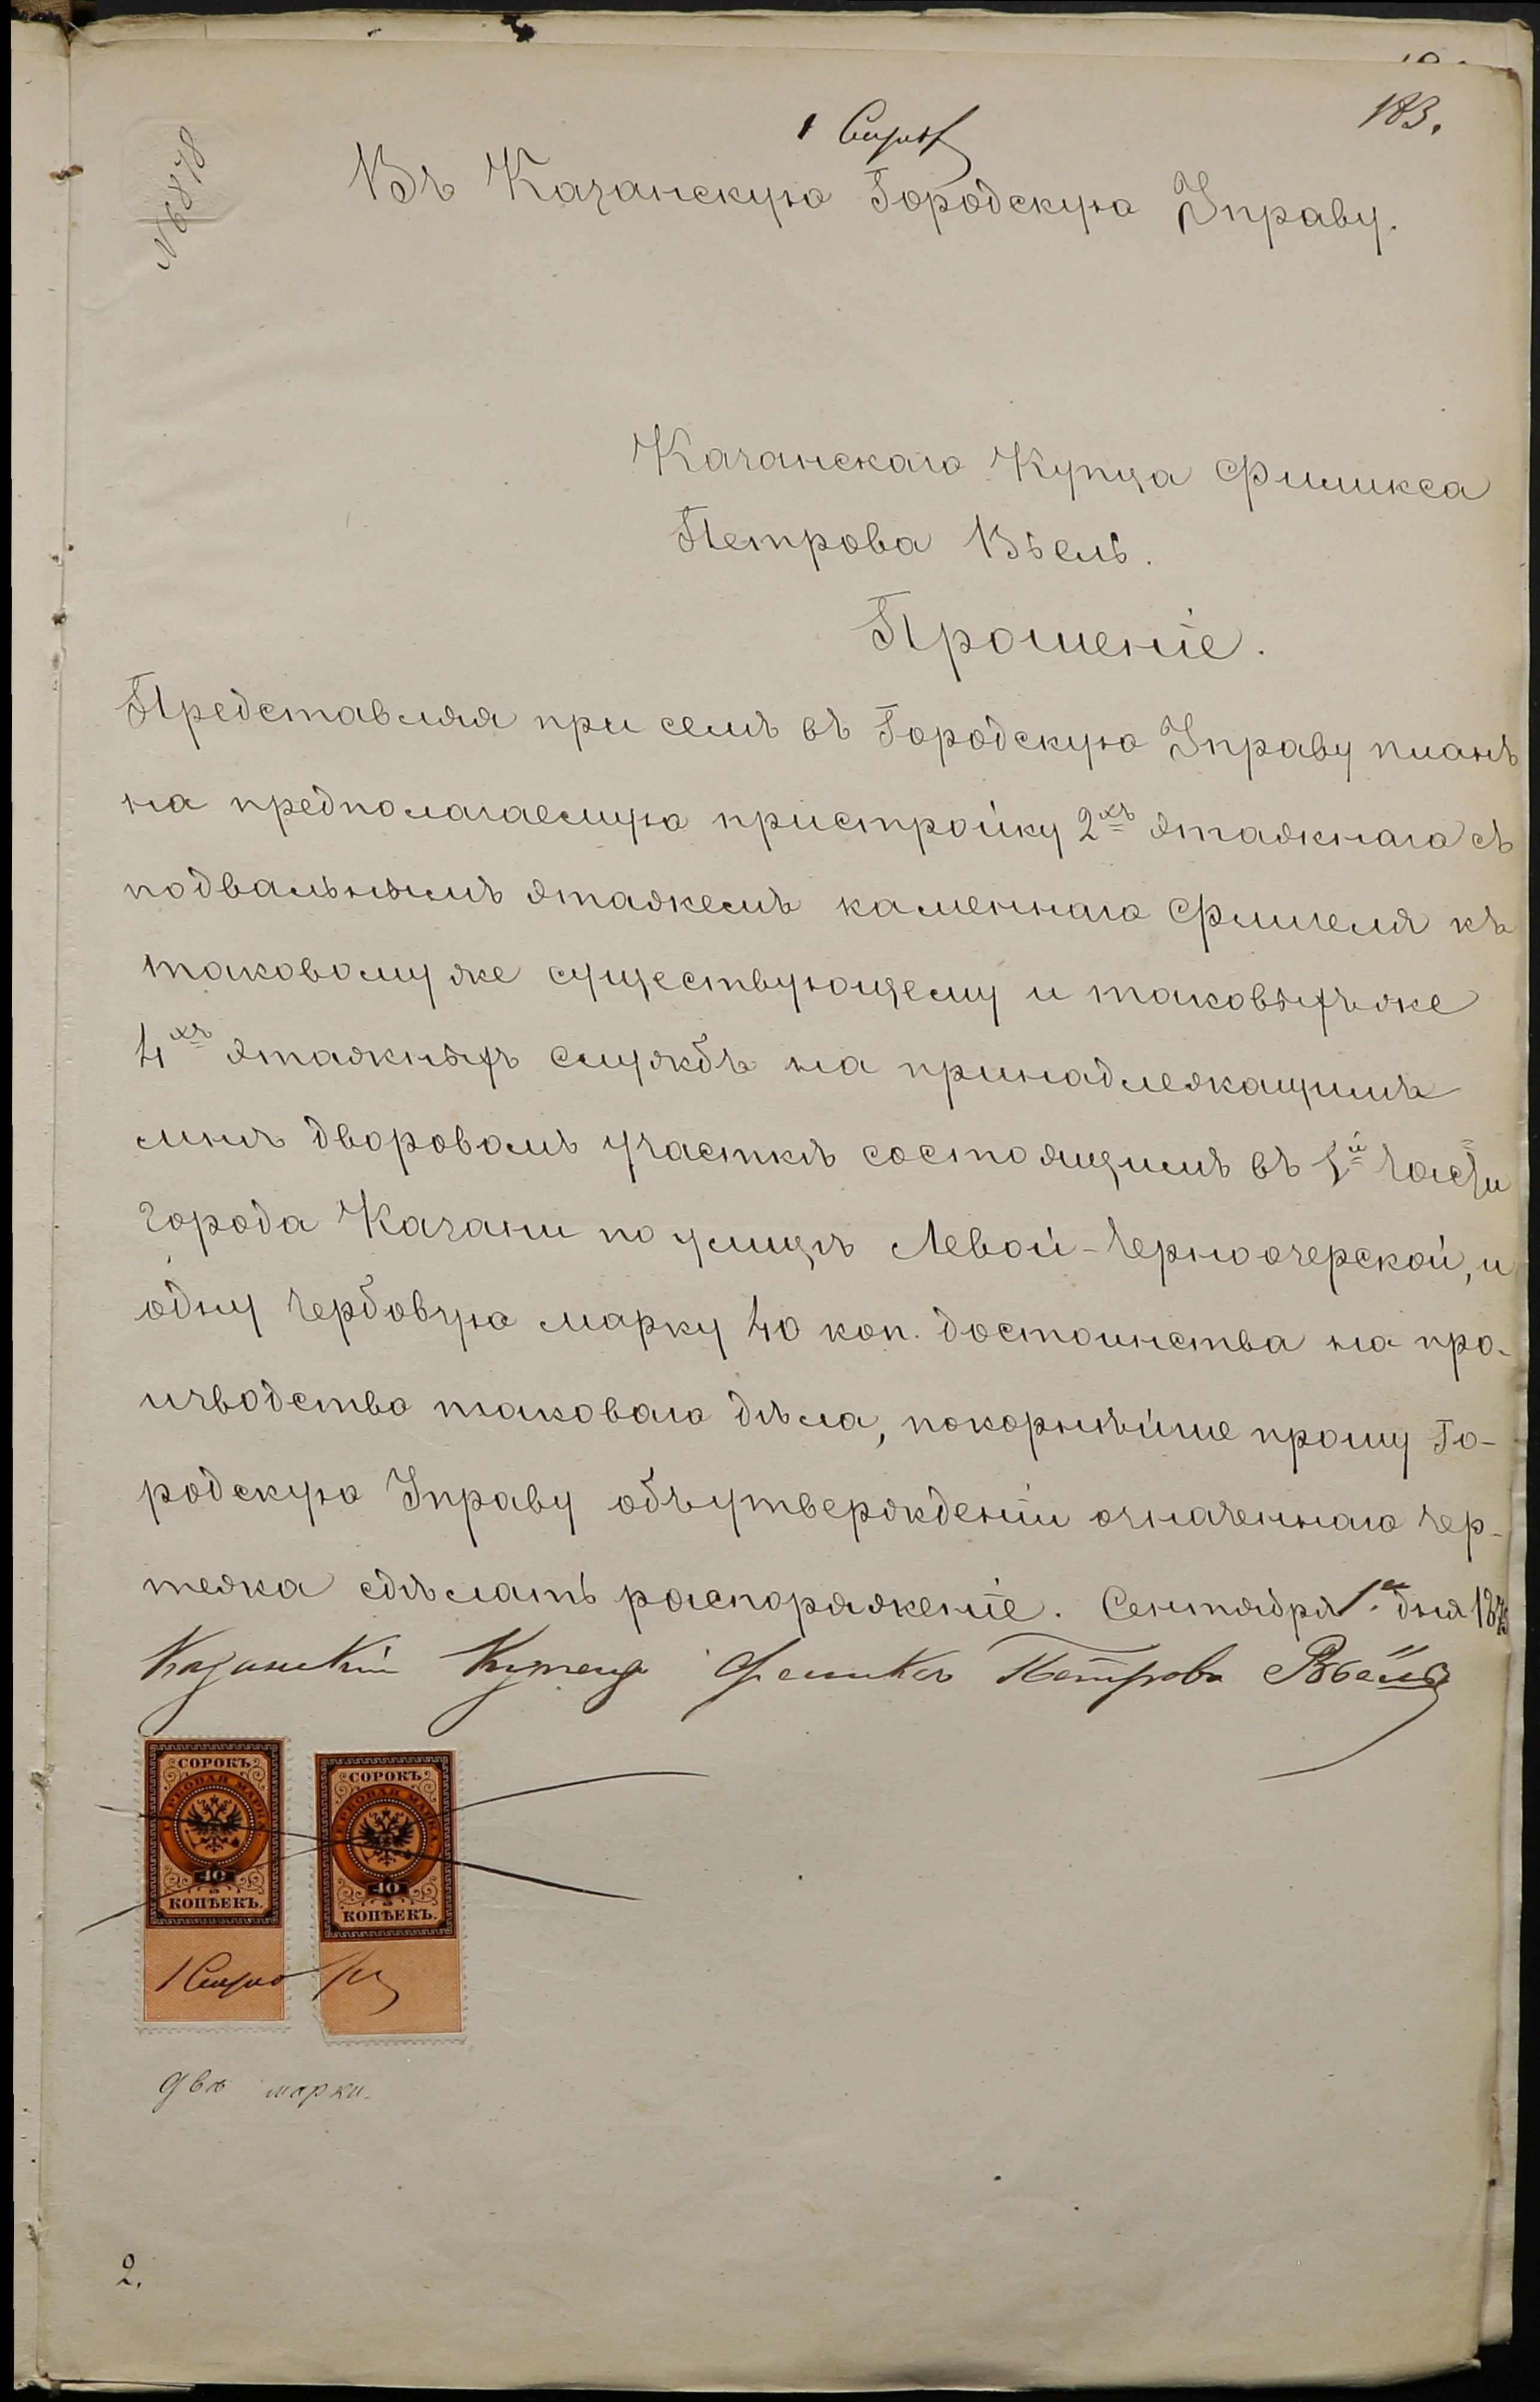 183.
1 Сент
№ 6878
Въ Казанскую Городскую Управу.
Казанскаго Купца Филикса
Петрова Вьель.
Прошеніе.
Представляя при семъ въ Городскую Управу планъ
на предполагаемую пристройку 2хъ этажнаго съ
подвальнымъ этажемъ каменнаго Флигеля къ
таковому же существующему и таковыхъ же
4хъ этажныхъ службъ на принадлежащимъ
мнѣ дворовомъ участкѣ состоящимъ въ 1й части
города Казани по улицѣ Левой-Черноозерской, и
одну гербовую марку 40 коп. достоинства на про-
изводство таковаго дѣла, покорнѣйше прошу Го-
родскую Управу объ утвержденіи означеннаго чер-
тежа сдѣлать распоряженіе. Сентября 1го дня 187
Казанскій Купецъ Феликсъ Петрова
СОРОКЪ СОРОКЪ
ГЕРБОВАЯ МАРКА ГЕРБОВАЯ МАРКА
40 40
КОПѢЕКЪ. КОПѢЕКЪ.
две марки.
2.